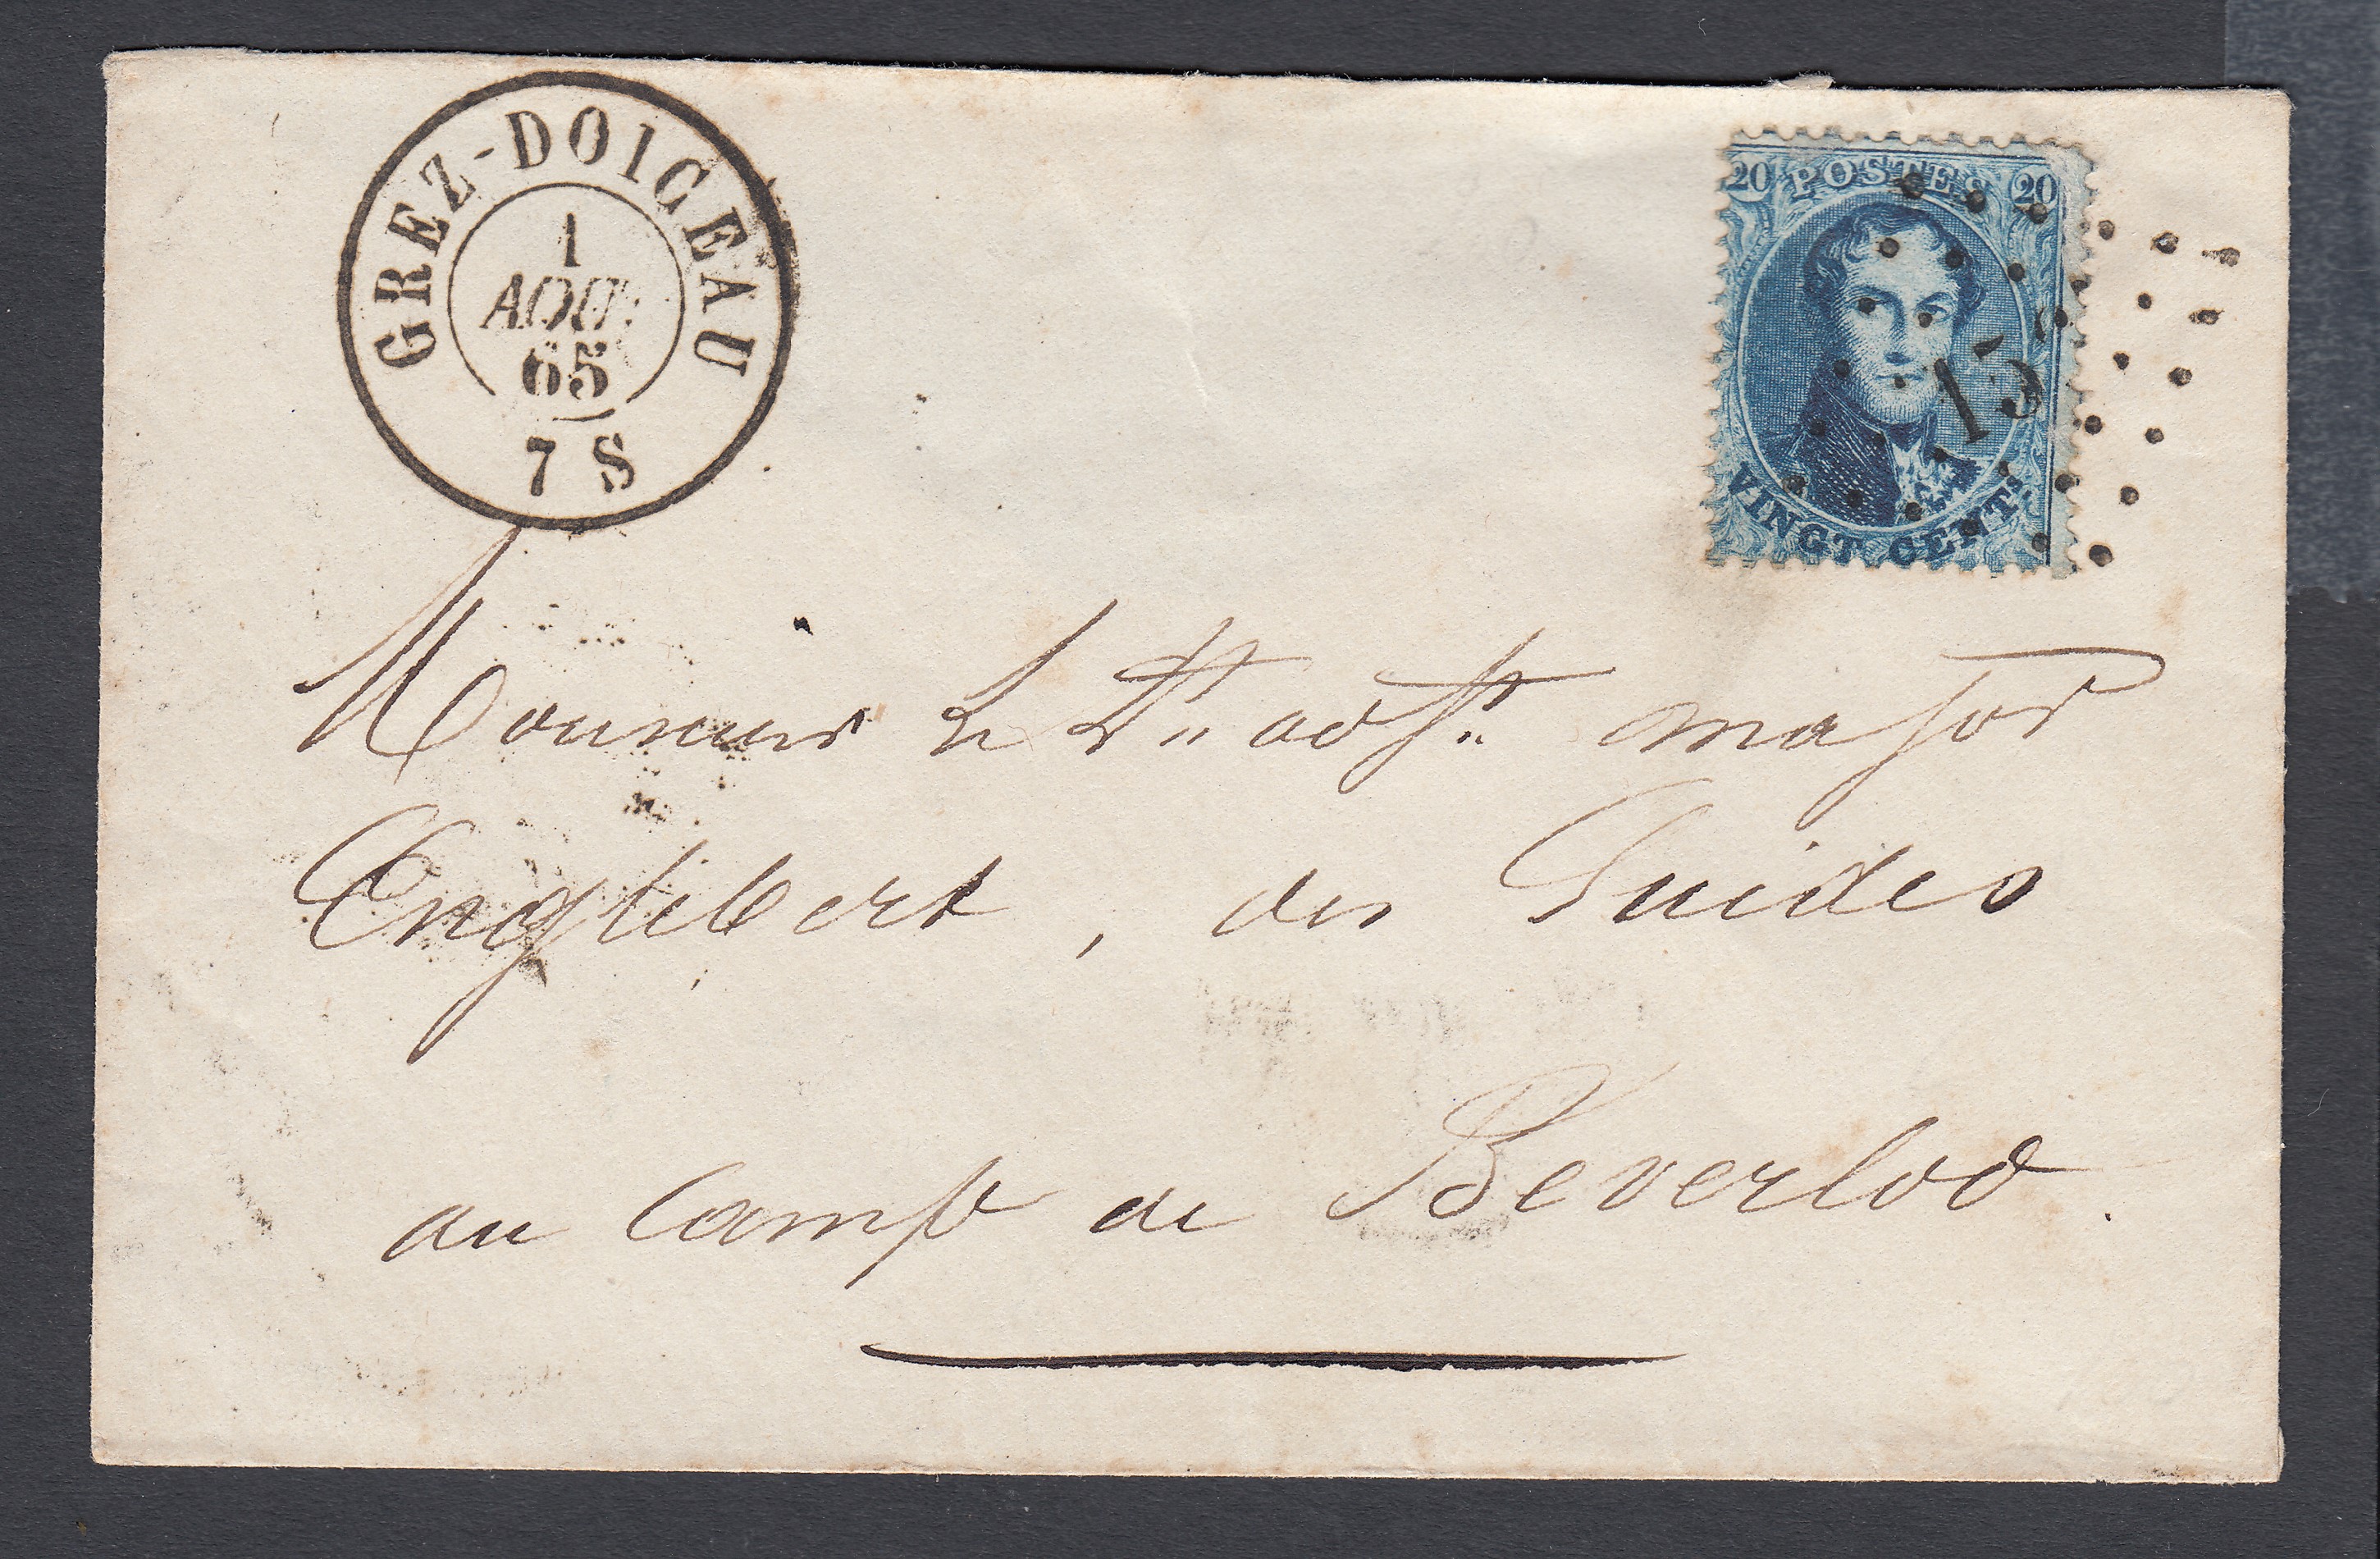 GREZ-DOICEAU
1
AOUT
65
7 S
20 POSTES 20
VINGT CENTS
Monsieur le Lt adjt major
Englebert, des Guides
au Camp de Beverloo.